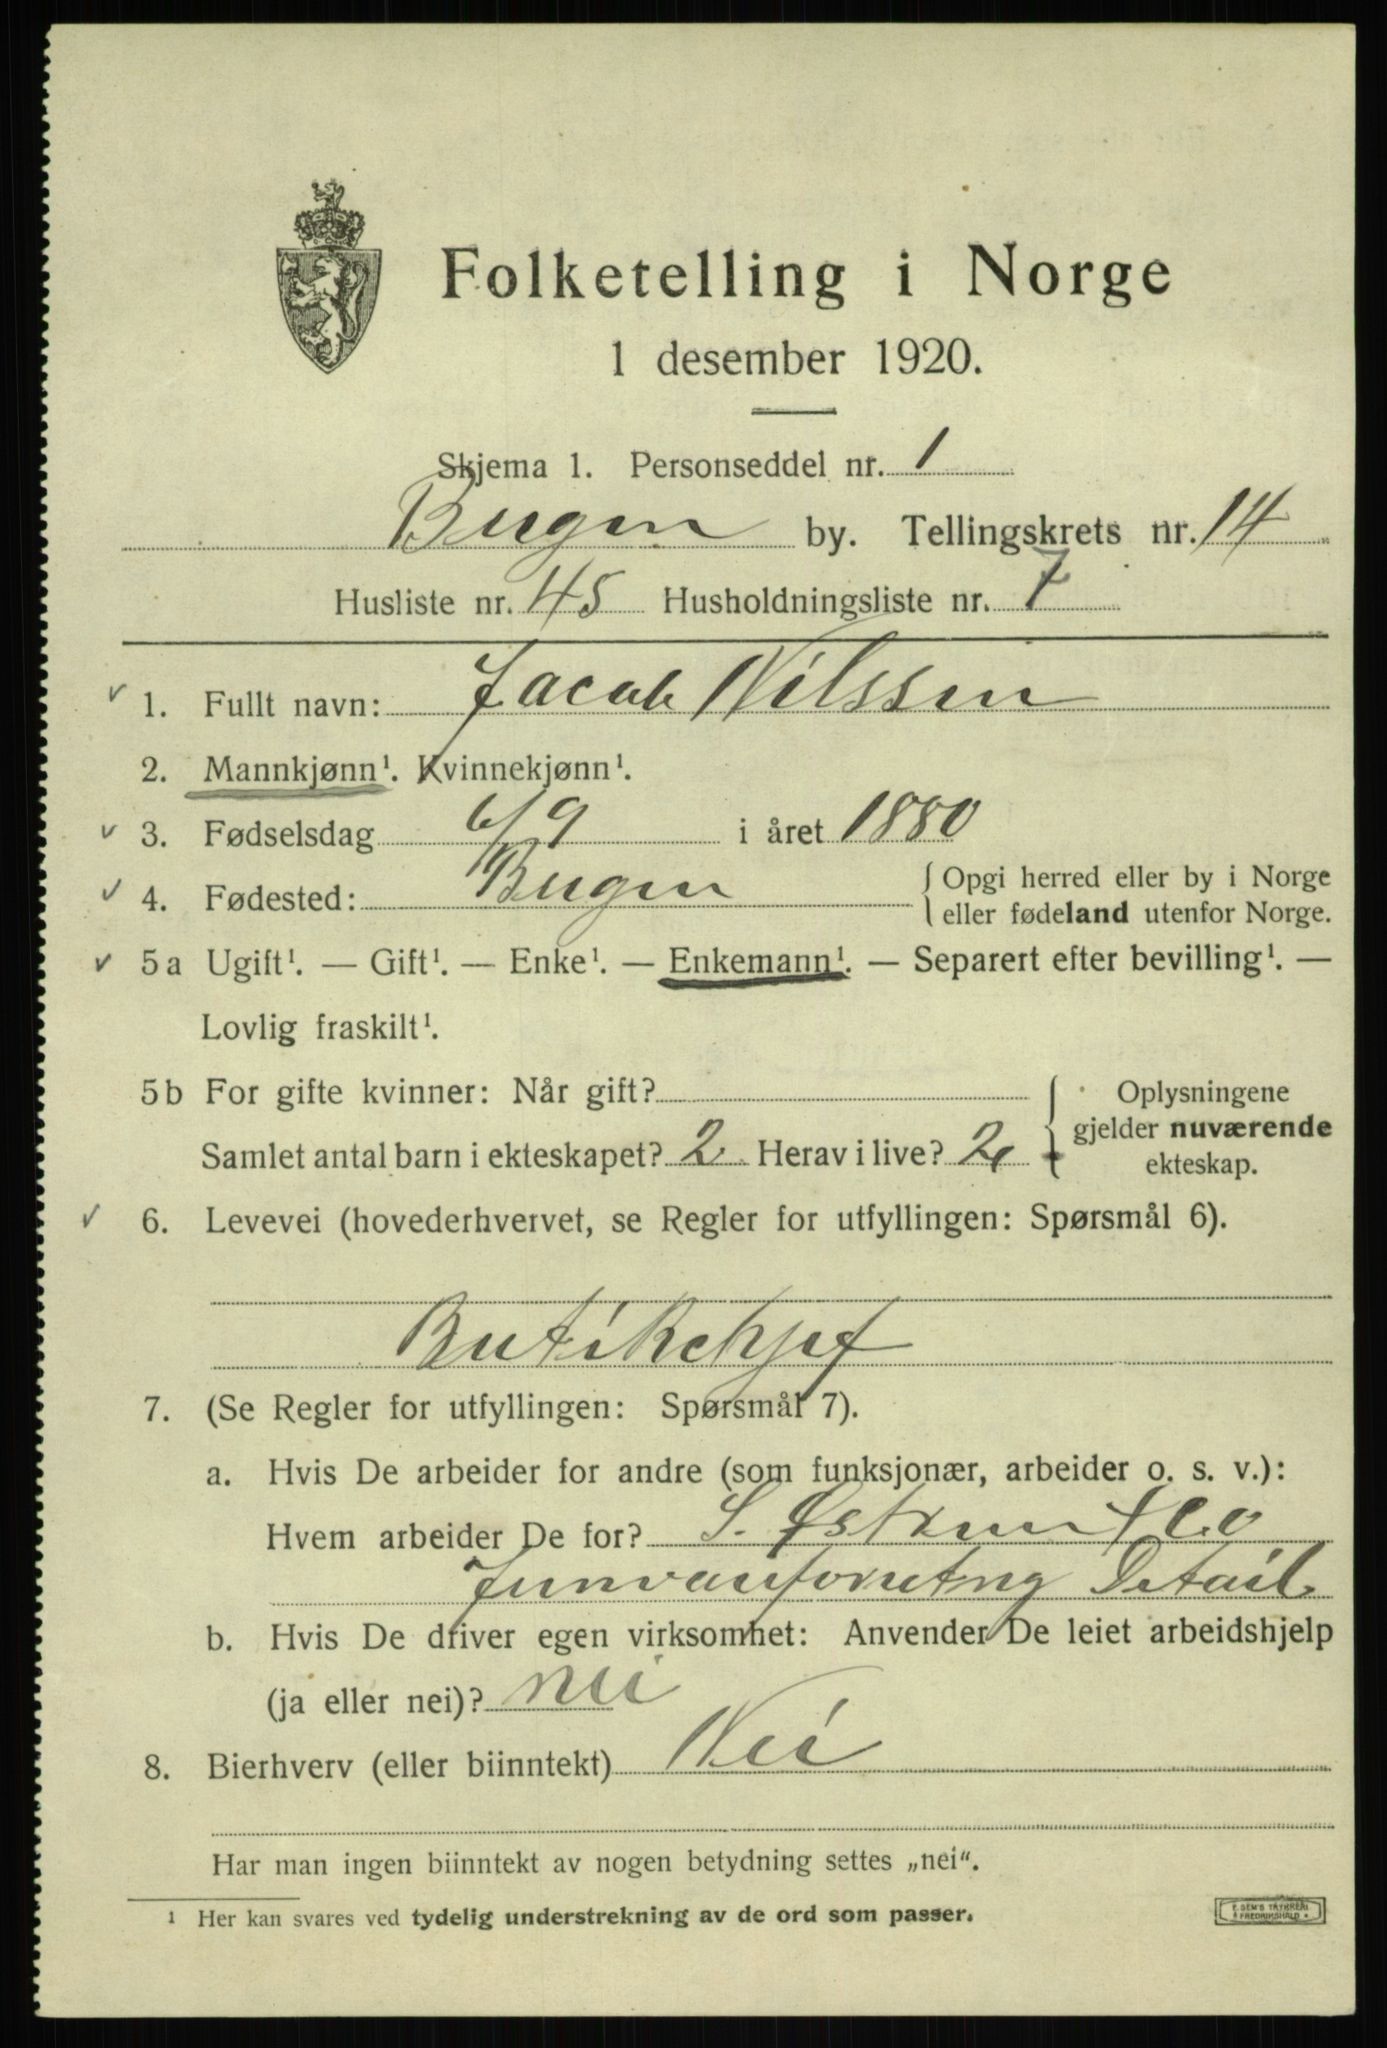 Folketelling i Norge
1 desember 1920.
Skjema 1. Personseddel nr. 1
Bergen by. Tellingskrets nr. 14
Husliste nr. 45 Husholdningsliste nr. 7
1. Fullt navn: Jacob Nilssen
2. Mannkjønn¹. Kvinnekjønn¹.
3. Fødselsdag 6/9 i året 1880
4. Fødested: Bergen { Opgi herred eller by i Norge
eller fødeland utenfor Norge.
5 a Ugift¹. — Gift¹. — Enke¹. — Enkemann¹. — Separert efter bevilling¹. —
Lovlig fraskilt¹.
5 b For gifte kvinner: Når gift? { Oplysningene
gjelder nuværende
ekteskap.
Samlet antal barn i ekteskapet? 2 Herav i live? 2
6. Levevei (hovederhvervet, se Regler for utfyllingen: Spørsmål 6).
Butikchef
7. (Se Regler for utfyllingen: Spørsmål 7).
a. Hvis De arbeider for andre (som funksjonær, arbeider o. s. v.):
Hvem arbeider De for? S. & Co
Detail
b. Hvis De driver egen virksomhet: Anvender De leiet arbeidshjelp
(ja eller nei)? nei
8. Bierhverv (eller biinntekt) Nei
Har man ingen biinntekt av nogen betydning settes „nei“.
¹ Her kan svares ved tydelig understrekning av de ord som passer.
E. SEM'S TRYKKERI
FREDRIKSHALD